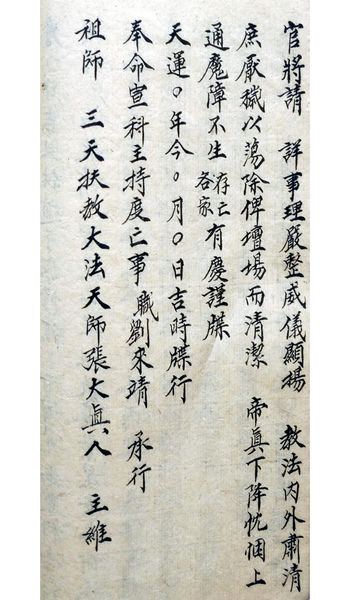 官將請　詳事理嚴整威儀顯揚　教法內外肅清
庶厭穢以蕩除俾壇場而清潔　帝眞下降忱悃上
通魔障不生存亡各家有慶謹牒
天運〇年今〇月〇日吉時牒行
奉命宣科主持度亡事　職劉來靖　承行
祖師　三天扶教大法天師張大眞人　主維